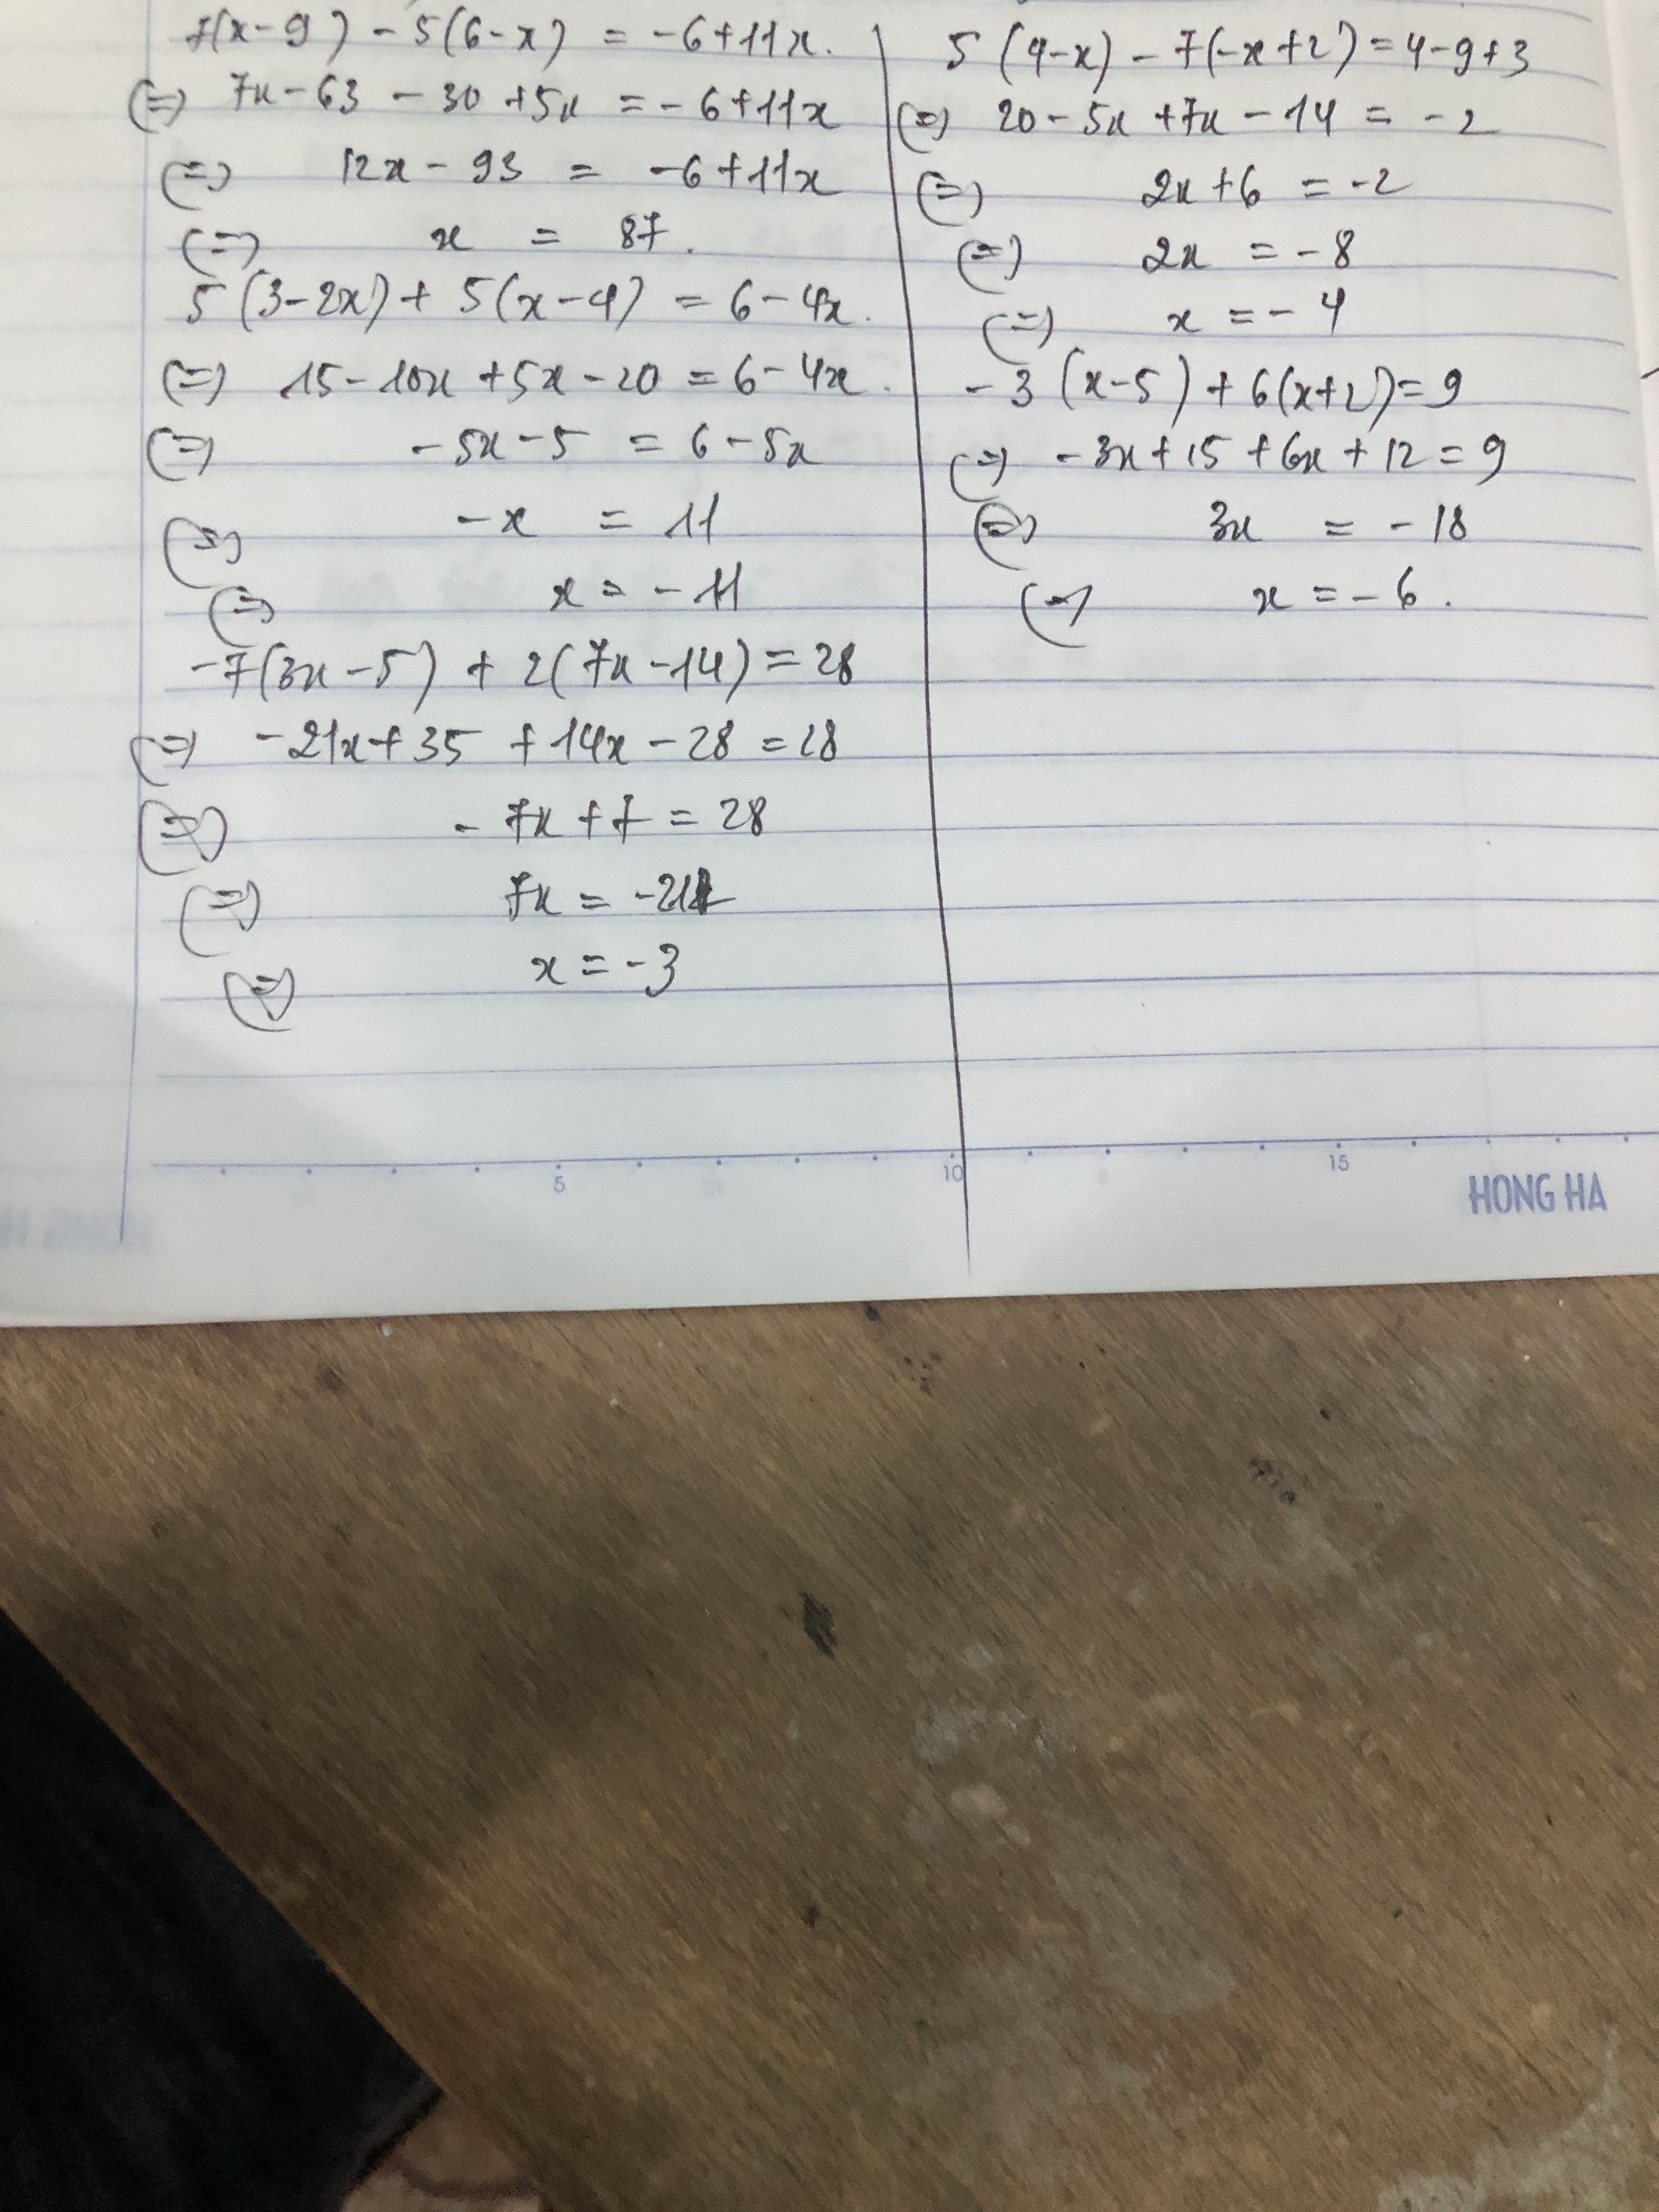 7(x-9) - 5(6-x) = -6+11x.
(=) 7x-63 - 30 +5x = -6+11x
(=) 12x - 93 = -6+11x
(=) x = 87.
5(3-2x) + 5(x-4) = 6-4x.
(=) 15-10x +5x-20 = 6-4x.
(=) -5x-5 = 6-5x
(=) -x = 11
(=) x = -11
-7(3x-5) + 2(7x-14) = 28
(=) -21x+35 +14x-28 = 28
(=) -7x+7 = 28
(=) 7x = -21
(=) x = -3
5(4-x) - 7(-x+2) = 4-9+3
(=) 20-5x +7x-14 = -2
(=) 2x+6 = -2
(=) 2x = -8
(=) x = -4
-3(x-5) + 6(x+2) = 9
(=) -3x+15 +6x+12 = 9
(=) 3x = -18
(=) x = -6.
5 10 15
HONG HA